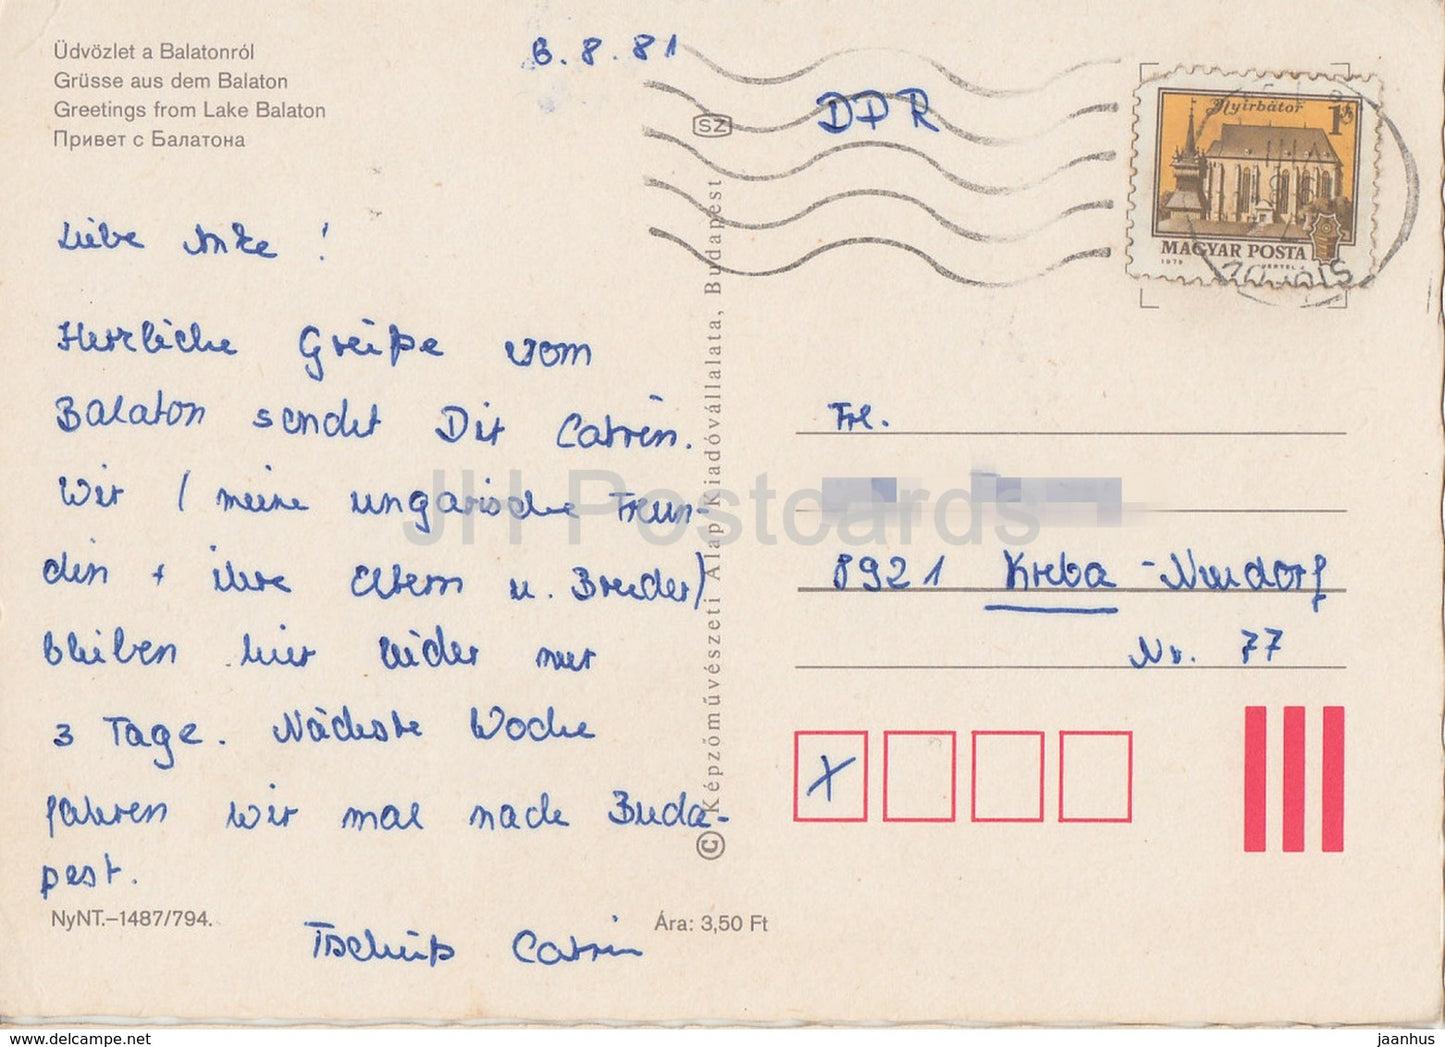 Üdvözlet a Balatonról
Grüsse aus dem Balaton
Greetings from Lake Balaton
Привет с Балатона
6.8.81
DDR
SZ
Nyírbátor 1Ft
MAGYAR POSTA
1979 VERTEL J.
Liebe Anke!
Herzliche Grüße vom
Balaton sendet Dir Catrin.
Wir (meine ungarische Freun-
din + ihre Eltern u. Bruder)
bleiben hier leider nur
3 Tage. Nächste Woche
fahren wir mal nach Buda-
pest.
Tschüß Catrin
Frl.
8921 Kreba-Neudorf
Nr. 77
X
© Képzőművészeti Alap Kiadóvállalata, Budapest
NyNT.–1487/794.
Ára: 3,50 Ft
JH Postcards
www.hippostcard.net
jaanhus